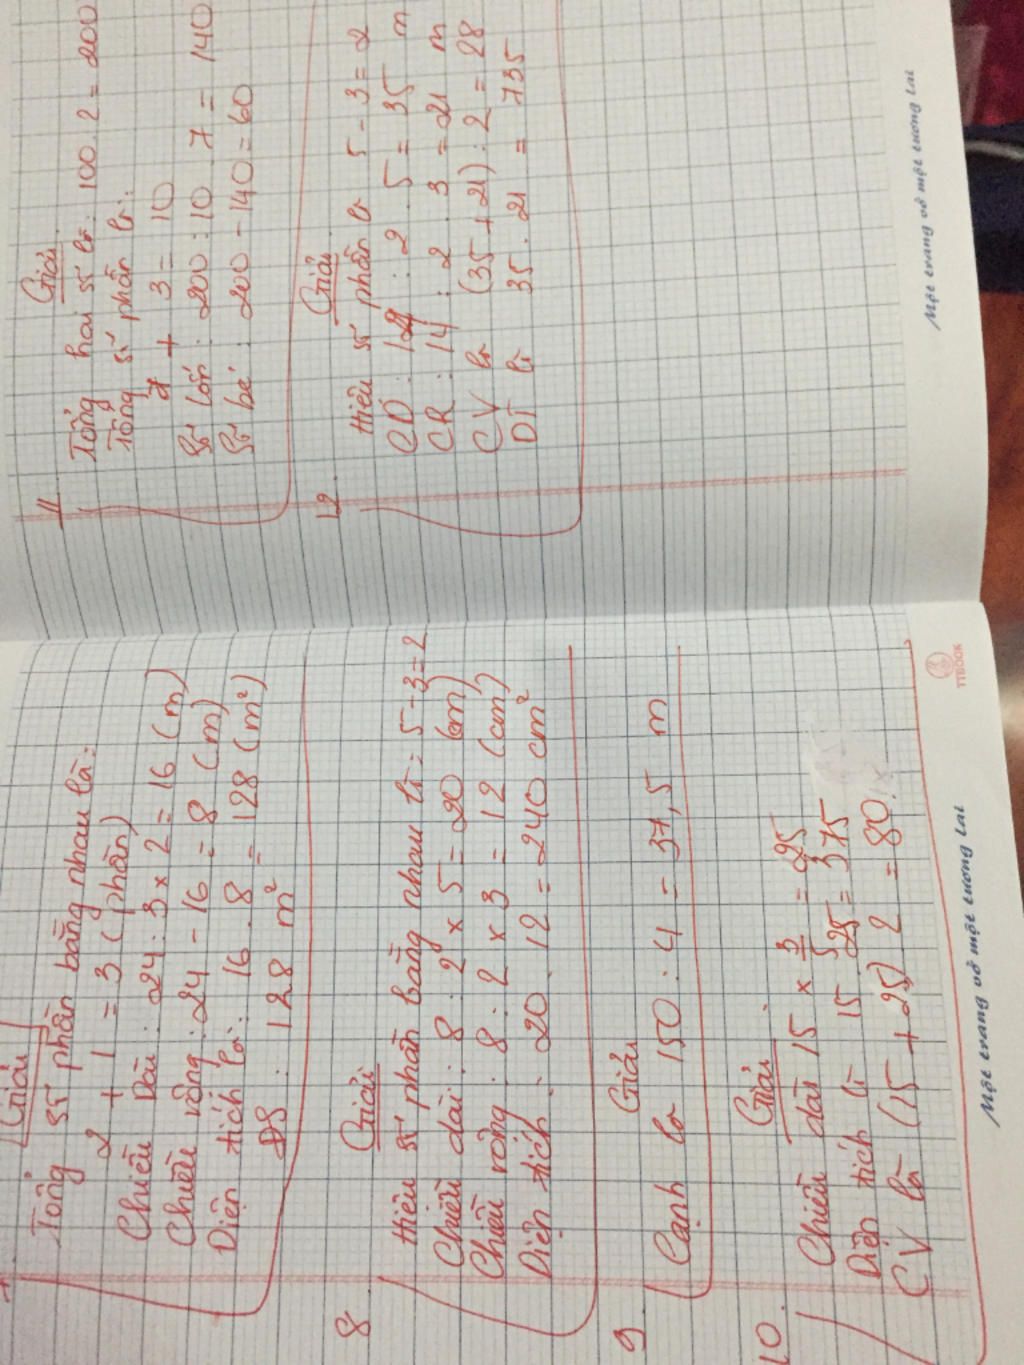 7.
Giải
Tổng số phần bằng nhau là:
2 + 1 = 3 (phần)
Chiều Dài : 24 : 3 x 2 = 16 (m)
Chiều rộng : 24 - 16 = 8 (m)
Diện tích là : 16 . 8 = 128 (m²)
ĐS : 128 m²
8
Giải
Hiệu số phần bằng nhau là = 5 - 3 = 2
Chiều dài : 8 : 2 x 5 = 20 (cm)
Chiều rộng : 8 : 2 x 3 = 12 (cm)
Diện tích : 20 . 12 = 240 cm²
9
Giải
Cạnh là 150 : 4 = 37,5 m
10.
Giải
Chiều dài 15 x 5/3 = 25
Diện tích là 15 . 25 = 375
CV là (15 + 25) 2 = 80
TTBOOK
Một trang vở một tương lai
11
Giải
Tổng hai số là : 100 . 2 = 200
Tổng số phần là :
7 + 3 = 10
Số lớn : 200 : 10 . 7 = 140
Số bé : 200 - 140 = 60
12.
Giải
Hiệu số phần là 5 - 3 = 2
CD : 14 : 2 . 5 = 35 m
CR : 14 : 2 . 3 = 21 m
CV là (35 + 21) : 2 = 28
DT là 35 . 21 = 735
Một trang vở một tương lai